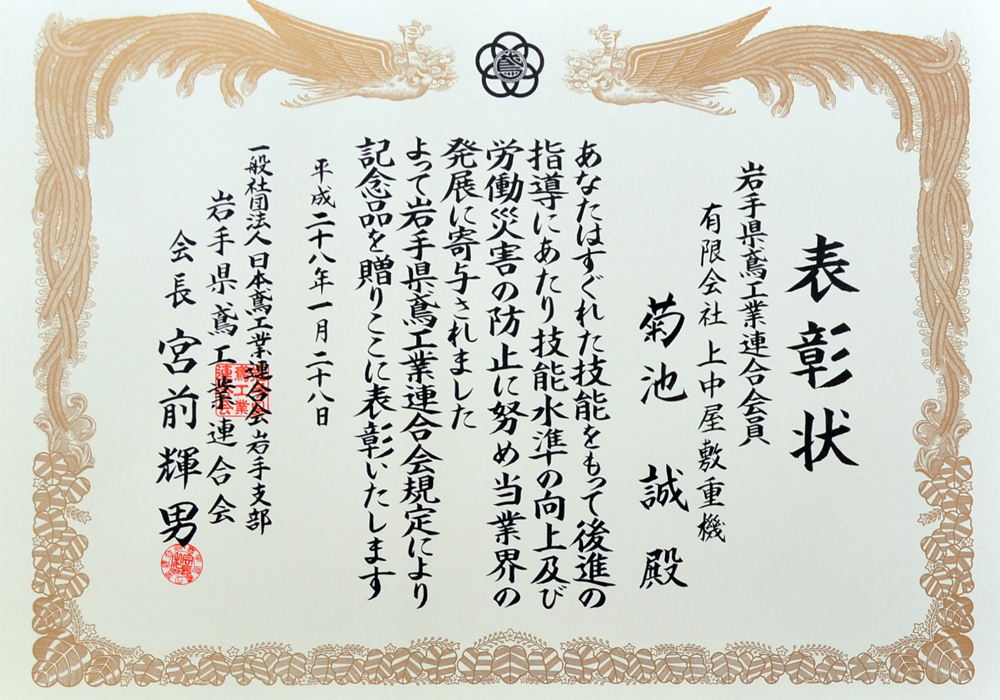 表彰状
岩手県鳶工業連合会員
有限会社 上中屋敷重機
菊池 誠 殿
あなたはすぐれた技能をもって後進の
指導にあたり技能水準の向上及び
労働災害の防止に努め当業界の
発展に寄与されました
よって岩手県鳶工業連合会規定により
記念品を贈りここに表彰いたします
平成二十八年一月二十八日
一般社団法人日本鳶工業連合会岩手支部
岩手県鳶工業連合会
会長 宮前輝男